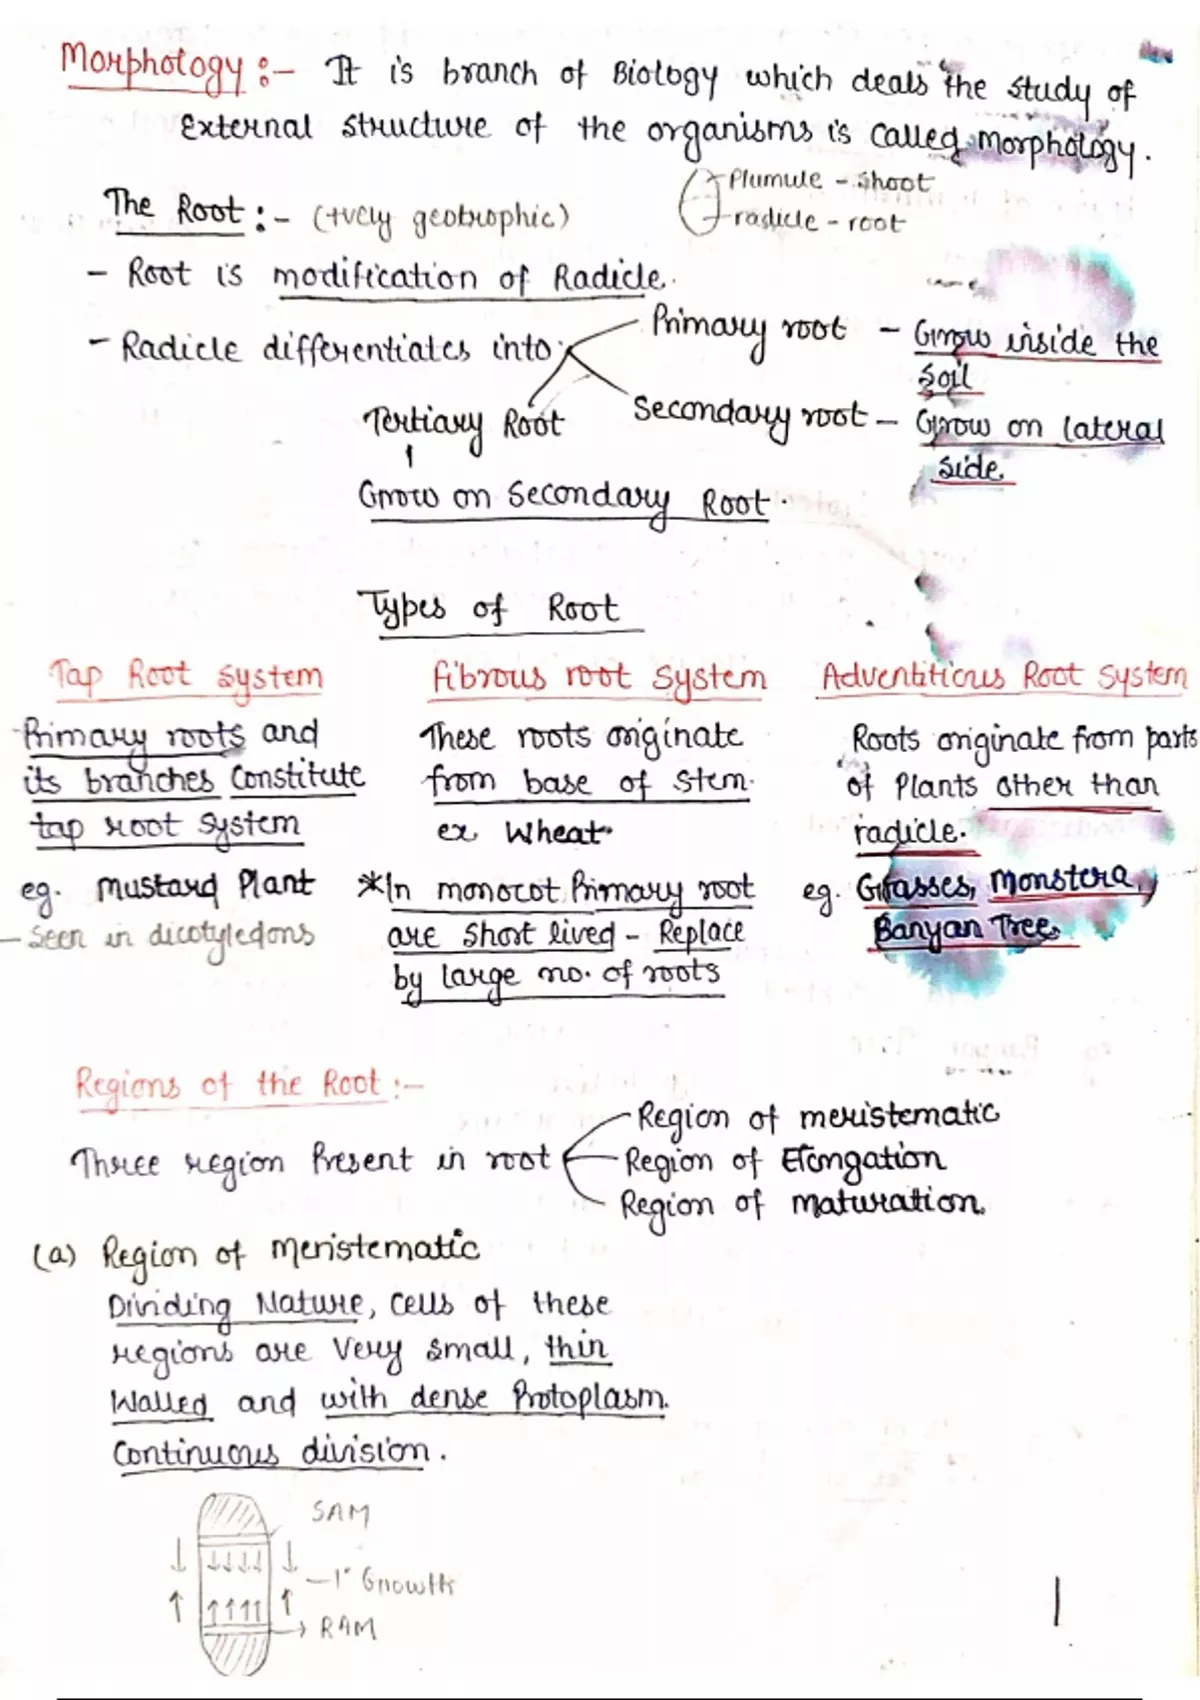 Morphology :- It is branch of Biology which deals the study of
External structure of the organisms is called Morphology.
Plumule - shoot
The Root :- (+vely geotrophic)
radicle - root
- Root is modification of Radicle.
- Radicle differentiates into
Primary root - Grow inside the
soil
Tertiary Root
Secondary root - Grow on lateral
side.
Grow on Secondary Root.
Types of Root
Tap Root system
Primary roots and
its branches constitute
tap root system
eg. Mustard Plant
- Seen in dicotyledons
fibrous root system
These roots originate
from base of stem.
ex Wheat.
*In monocot Primary root
are short lived - Replace
by large no. of roots
Adventitious Root system
Roots originate from parts
of Plants other than
radicle.
eg. Grasses, Monstera,
Banyan Tree.
Regions of the Root :-
Region of meristematic
Three region Present in root
Region of Elongation
Region of maturation.
(a) Region of meristematic
Dividing Nature, cells of these
regions are Very small, thin
Walled and with dense Protoplasm.
Continuous division.
SAM
- 1° Growth
RAM
1